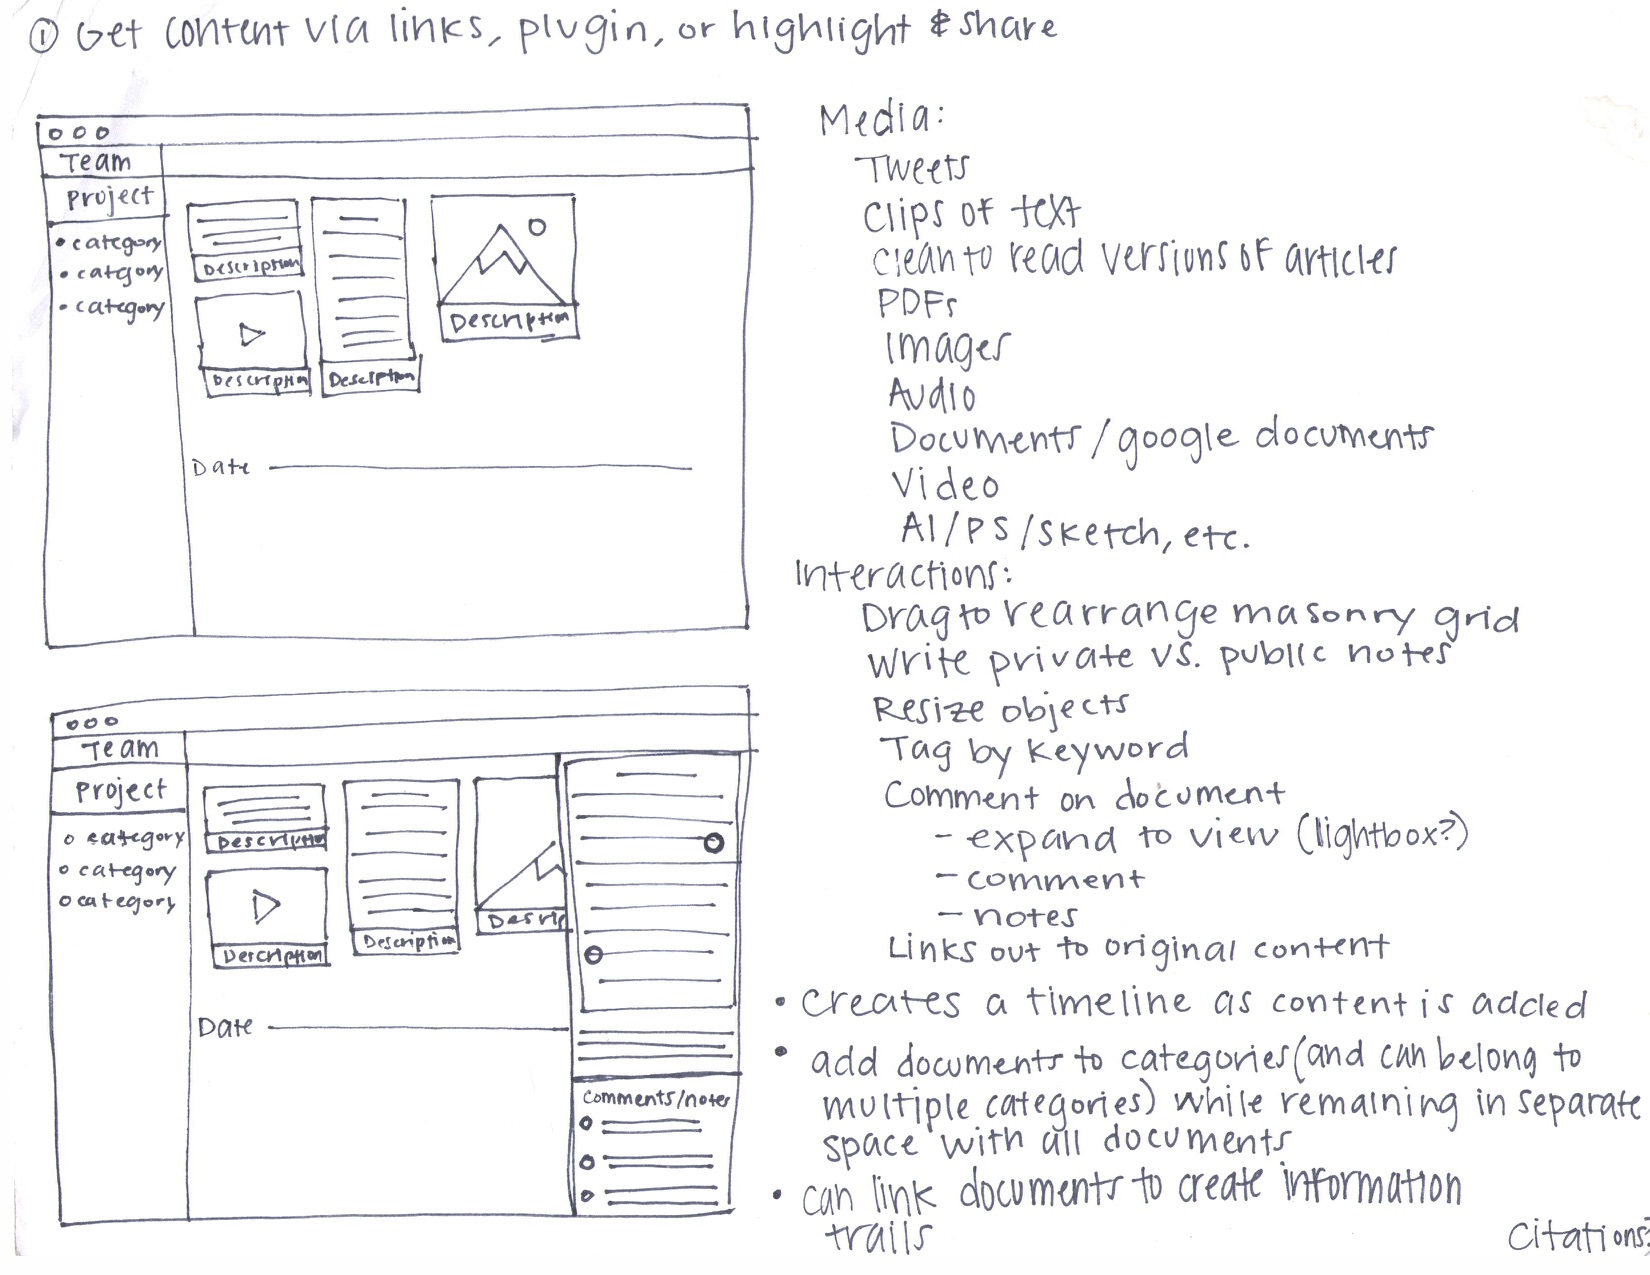 ① Get content via links, plugin, or highlight & share
Team
Project
• category
• category
• category
Description
Description
Description
Description
Date
Team
Project
o category
o category
o category
Description
Description
Description
Descrip
Date
Comments/notes
Media:
Tweets
Clips of text
Clean to read versions of articles
PDFs
Images
Audio
Documents / google documents
Video
AI/PS/Sketch, etc.
Interactions:
Drag to rearrange masonry grid
Write private vs. public notes
Resize objects
Tag by keyword
Comment on document
- expand to view (lightbox?)
- comment
- notes
Links out to original content
• creates a timeline as content is added
• add documents to categories (and can belong to
multiple categories) while remaining in separate
space with all documents
• can link documents to create information
trails
Citations?